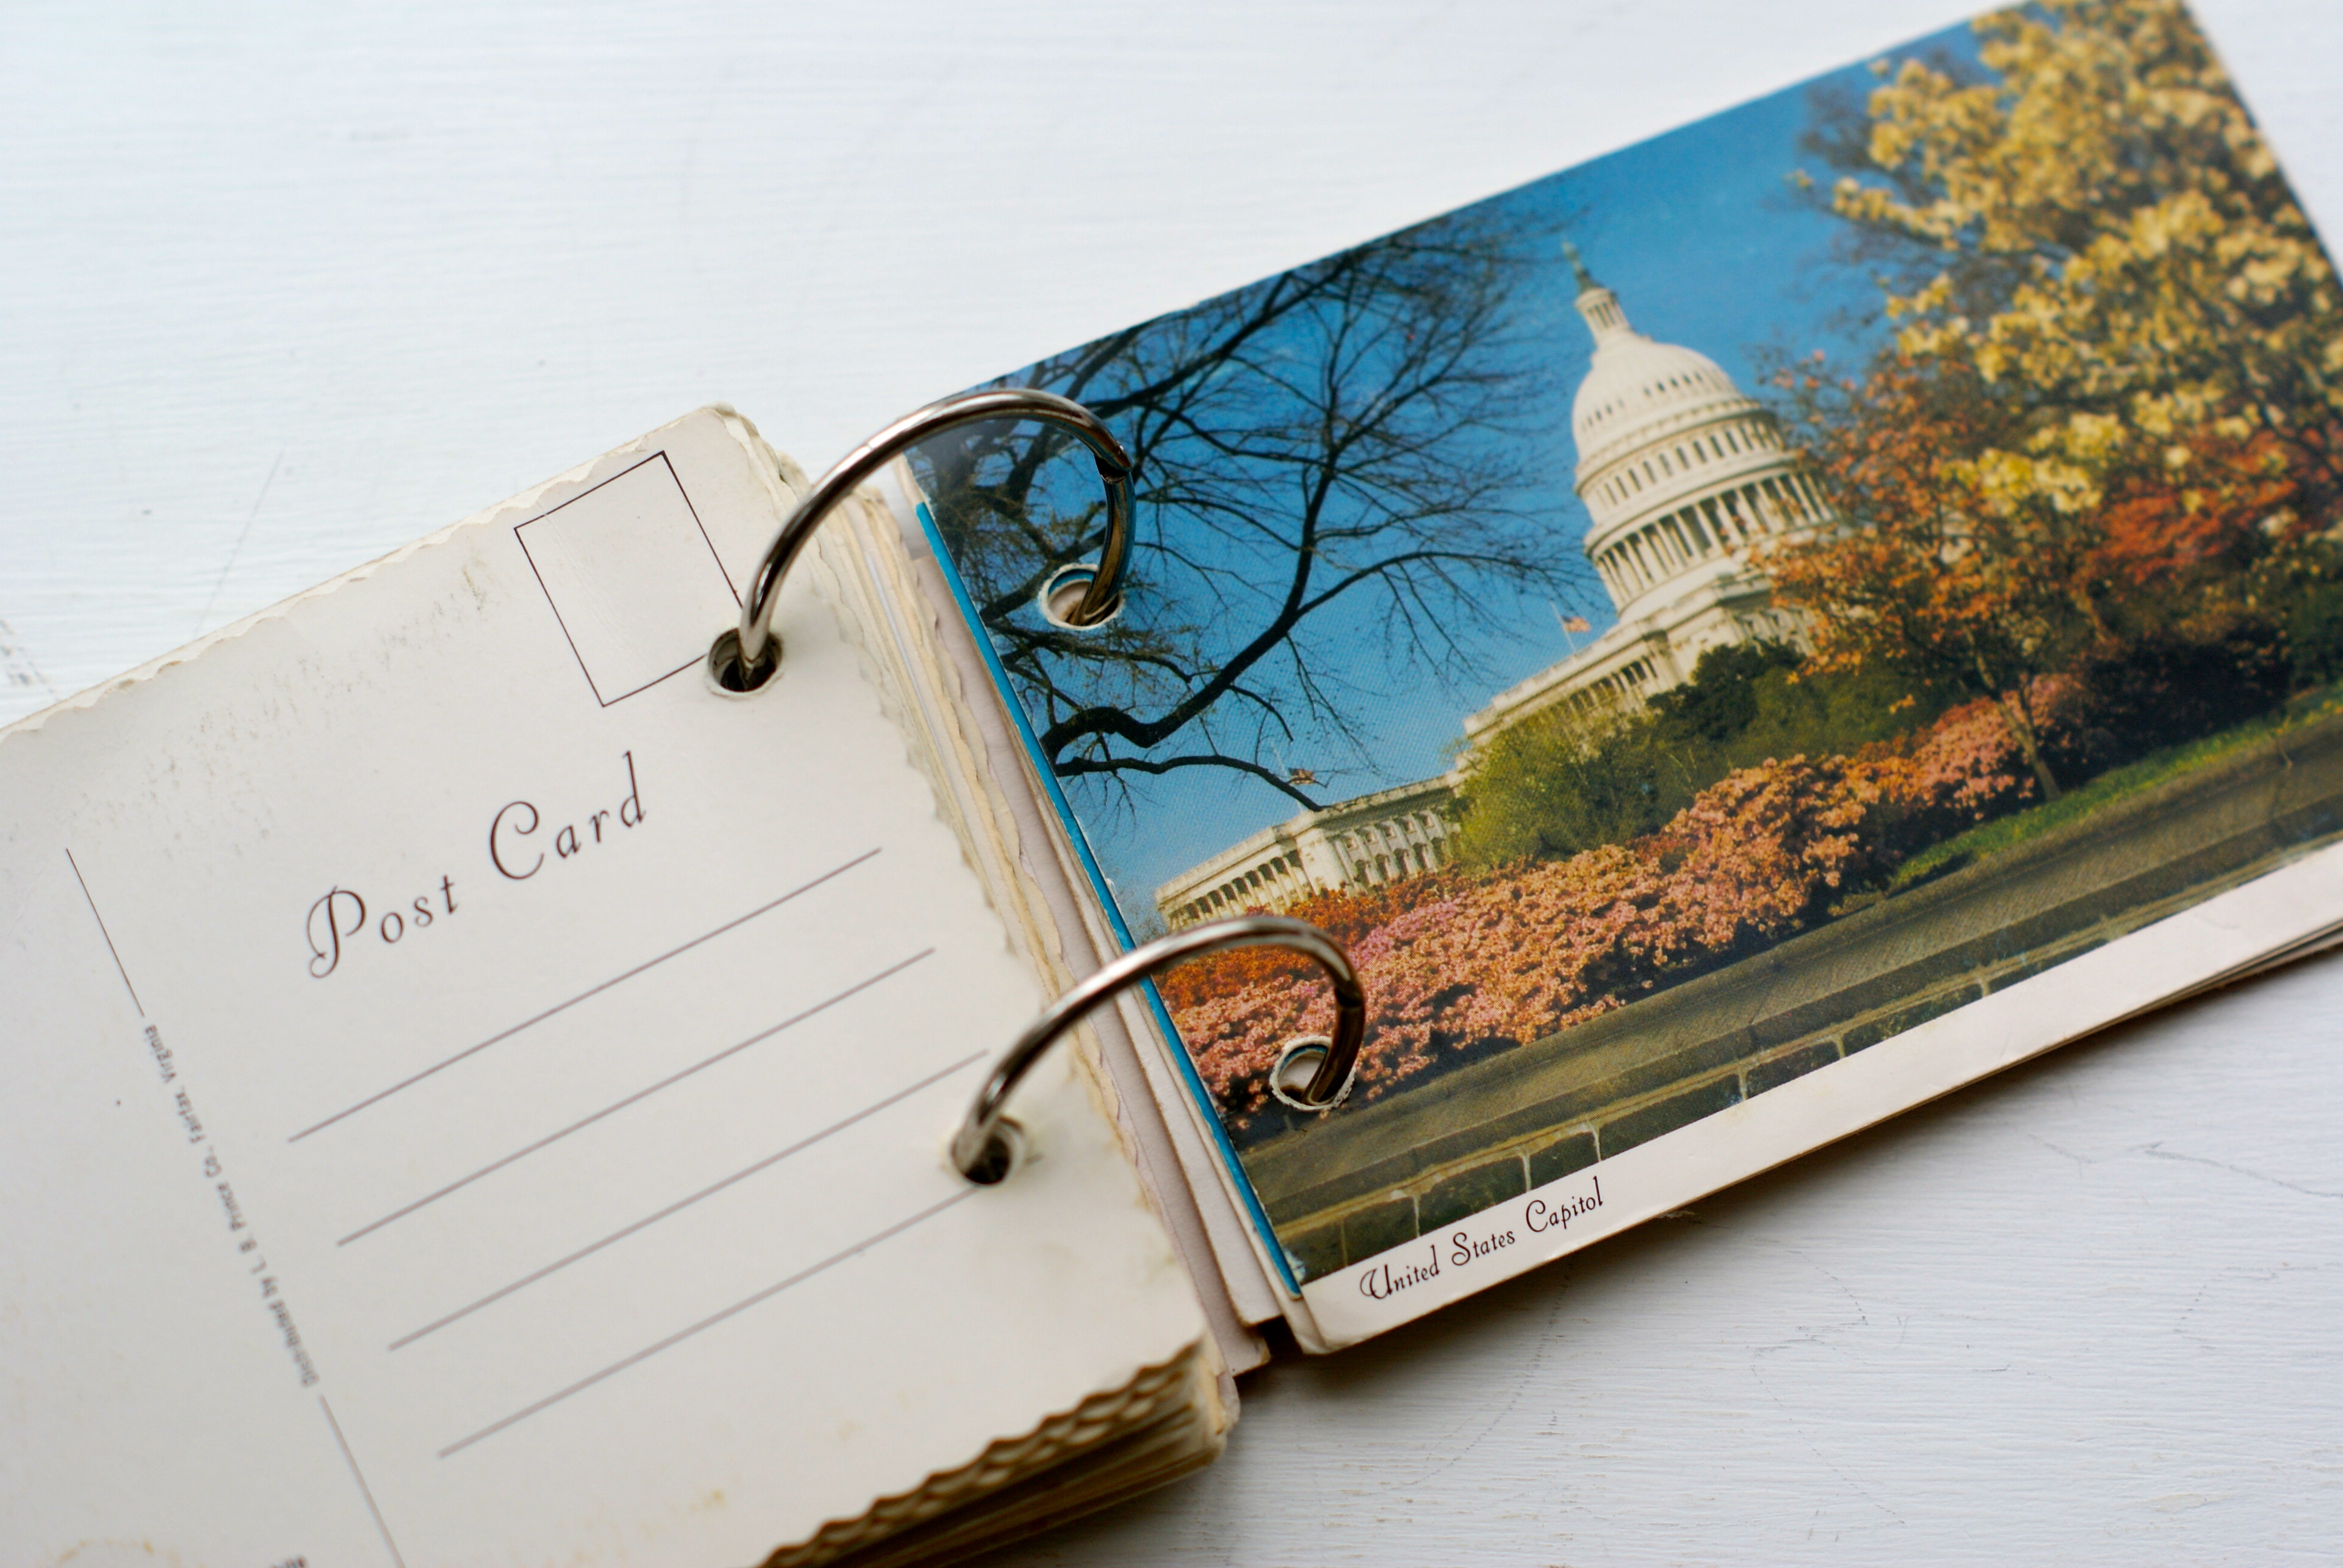 Post Card
Distributed by L. B. Prince Co., Fairfax, Virginia
United States Capitol